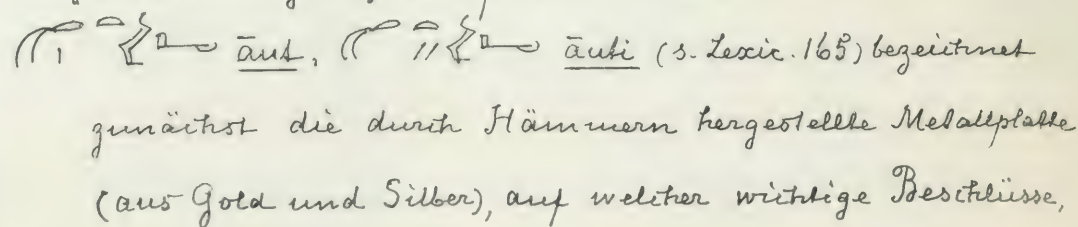 āut, āuti (s. Lexic. 165) bezeichnet
zunächst die durch Hämmern hergestellte Metallplatte
(aus Gold und Silber), auf welcher wichtige Beschlüsse,